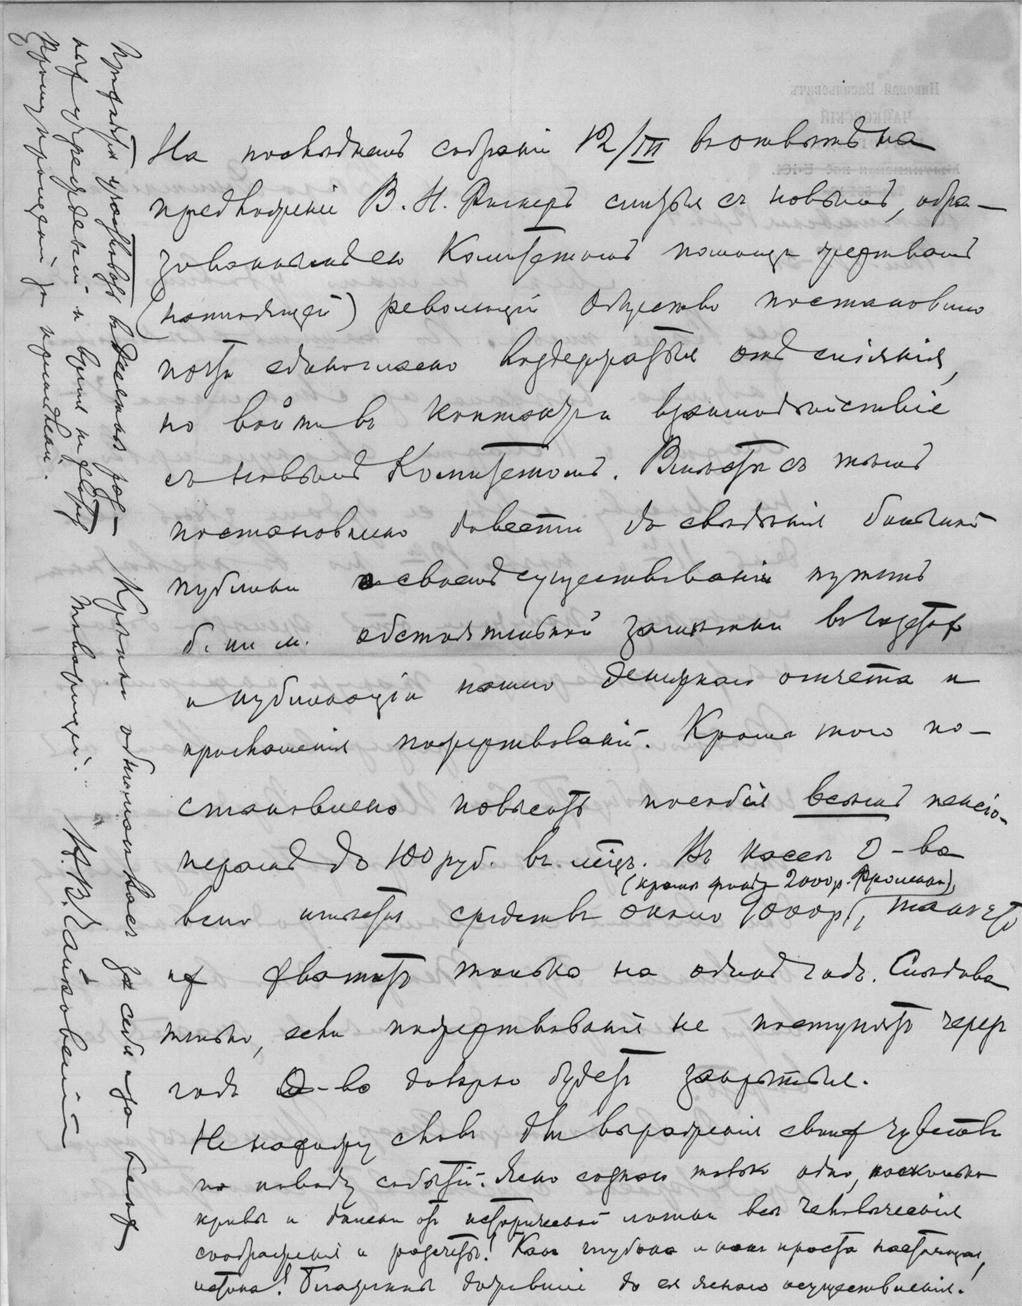 На последнемъ собраніи 12/III въ отвѣтъ на
предложеніе В. Н. Фигнеръ слиться съ новымъ, обра-
зовавшимся Комитетомъ помощи жертвамъ
(настоящей) революціи Общество постановило
почти единогласно воздержаться отъ сліянія,
но войти въ контактъ и взаимодѣйствіе
съ новымъ Комитетомъ. Вмѣстѣ съ тѣмъ
постановлено довести до свѣдѣнія большой
публики о своемъ существованіи путемъ
б. или м. обстоятельной замѣтки въ газетахъ
и публикаціи нашего денежнаго отчета и
приглашенія пожертвованій. Кромѣ того по-
становлено повысить пособія всѣмъ пенсіо-
нерамъ до 100 руб. въ мѣсяцъ. Въ кассѣ О-ва
(кромѣ фонда 2000 р.
всего имѣется средствъ около 9000 р., такъ что
ихъ хватитъ только на одинъ годъ. Слѣдова
тельно, если пожертвованія не поступятъ через
годъ О-во должно будетъ закрыться.
Не нахожу словъ для выраженія своихъ чувствъ
по поводу событій. Ясно сознаю только одно, насколько
кривы и далеки отъ исторической логики всѣ человѣческія
соображенія и разсчеты! Какъ глубока и какъ проста настоящая
истина! Благо намъ дожившимъ до ея яснаго осуществленія.
Крѣпко обнимаю васъ за себя и за всѣхъ
товарищей. Н. В. Чайковскій